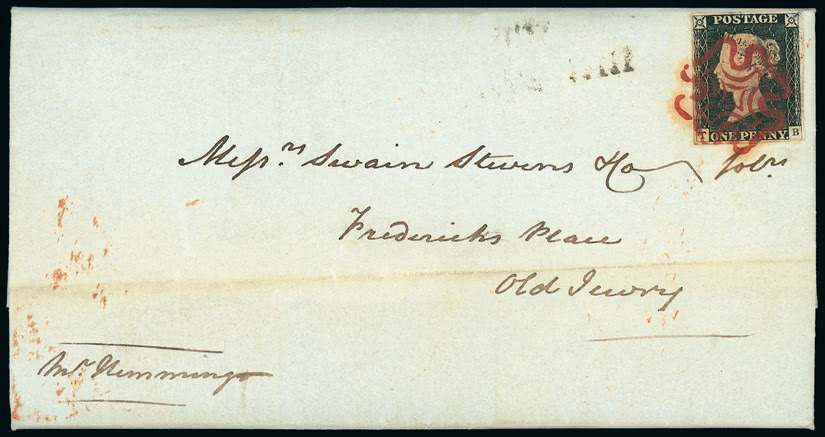 POSTAGE
T ONE PENNY B
Messrs Swain Stevens & Co Solrs
Fredericks Place
Old Jewry
Mr Hemmings